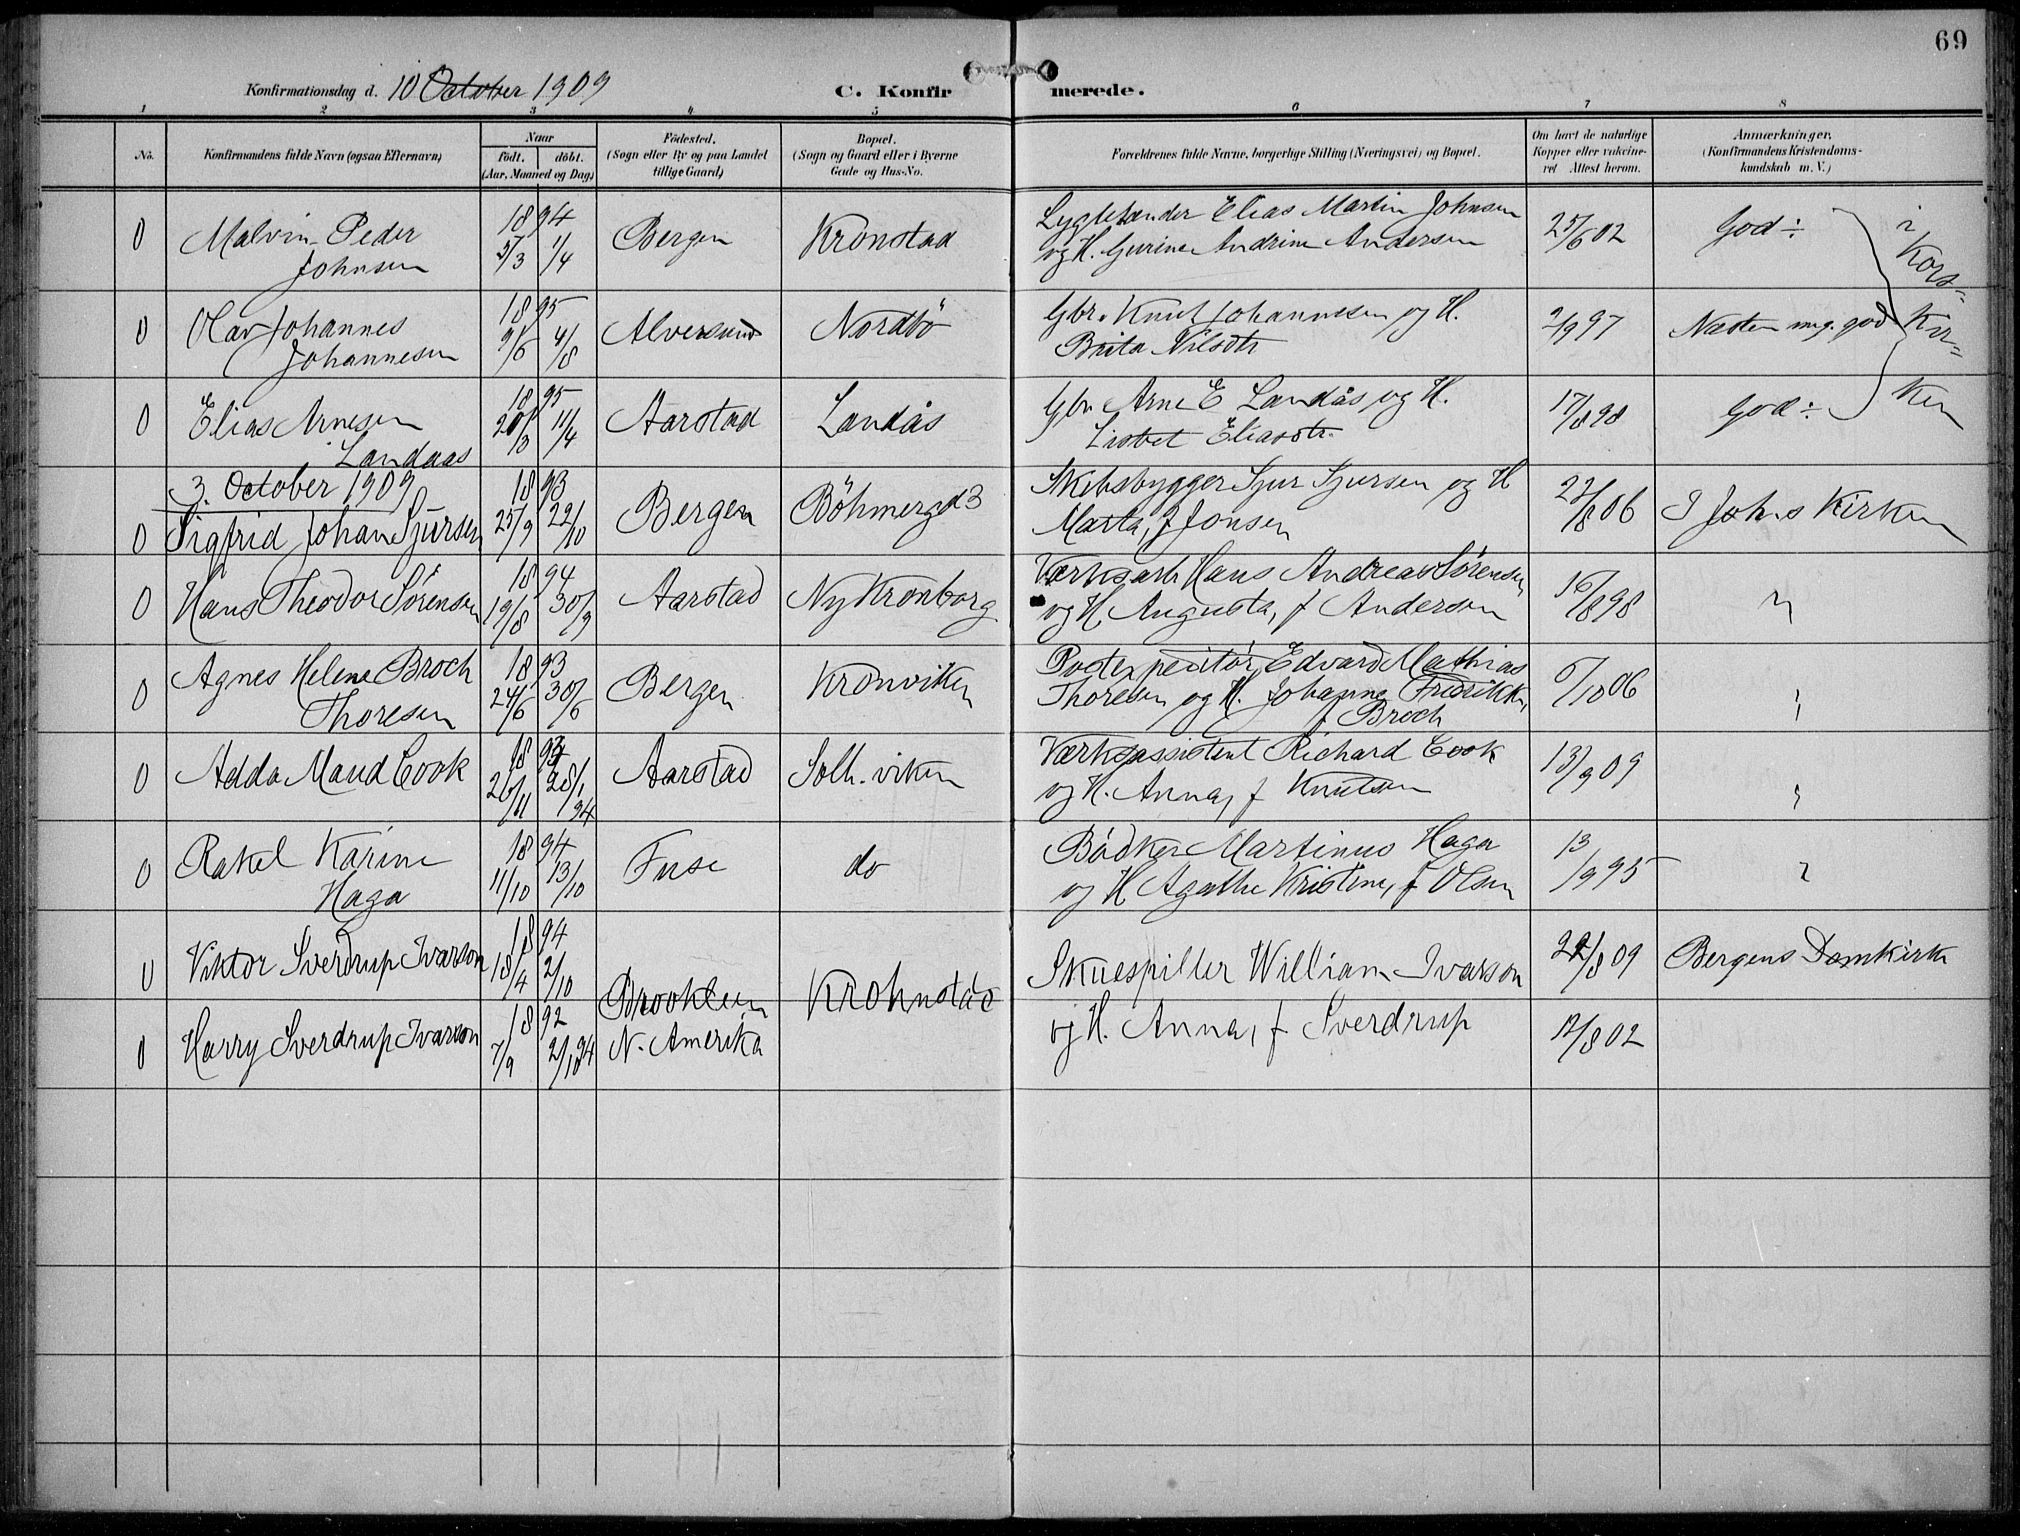 69
Konfirmationsdag d. 10 October 1909
C. Konfirmerede.
1 2 3 4 5 6 7 8
No.
Konfirmandens fulde Navn (ogsaa Efternavn)
Naar
født. døbt.
(Aar, Maaned og Dag)
Fødested.
(Sogn eller By og paa Landet
tillige Gaard)
Bopæl.
(Sogn og Gaard eller i Byerne
Gade og Hus-No.
Forældrenes fulde Navne, borgerlige Stilling (Næringsvei) og Bopæl.
Om havt de naturlige
Kopper eller vakcine-
ret Attest herom.
Anmærkninger.
(Konfirmandens Kristendoms-
kundskab m. V.)
0 Malvin Peder
Johnsen
1894
5/3 1/4
Bergen
Kronstad
Lygtetænder Elias Martin Johnsen
og H. Gurine Andrine Andersen
25/6 02
God ÷
i Kors-
Kir-
ken
0 Olav Johannes
Johannesen
1895
9/6 4/8
Alversund
Nordbö
Gbr. Knut Johannesen og H.
Brita Nilsdtr
2/9 97
Næsten meg. god
0 Elias Arnesen
Landaas
1895
20/3 11/4
Aarstad
Landås
Gbr. Arne E Landås og H.
Lisbet Eliasdtr.
17/8 98
God ÷
3. October 1909
0 Sigfrid Johan Sjursen
1893
25/9 22/10
Bergen
Böhmergd 3
Skibsbygger Sjur Sjursen og H
Marta, f Jonsen
23/8 06
I Johs Kirken
0 Hans Theodor Sörensen
1894
19/8 30/9
Aarstad
Ny Kronborg
Værksarb Hans Andreas Sörensen
og H Augusta, f Andersen
16/8 98
"
0 Agnes Helene Broch
Thoresen
1893
24/6 30/6
Bergen
Kronviken
Postexpeditör Edvard Mathias
Thoresen og H. Johanne Fredrikke,
f Broch
6/10 06
"
0 Adda Maud Cook
1893
26/11 28/1 94
Aarstad
Solh. viken
Værksassistent Richard Cook
og H. Anna, f Knutsen
13/9 09
"
0 Rakel Karine
Haga
1894
11/10 13/10
Fuse
do
Bödker Martinus Haga
og H Agathe Kristine, f Olsen
13/9 95
"
0 Viktor Sverdrup Ivarson
1894
18/4 2/10
Brooklein
N. Amerika
Krohnstad
Skuespiller William Ivarson
og H. Anna, f Sverdrup
/8 09
Bergens Domkirke
0 Harry Sverdrup Ivarson
1892
7/9 2/10 94
12/8 02